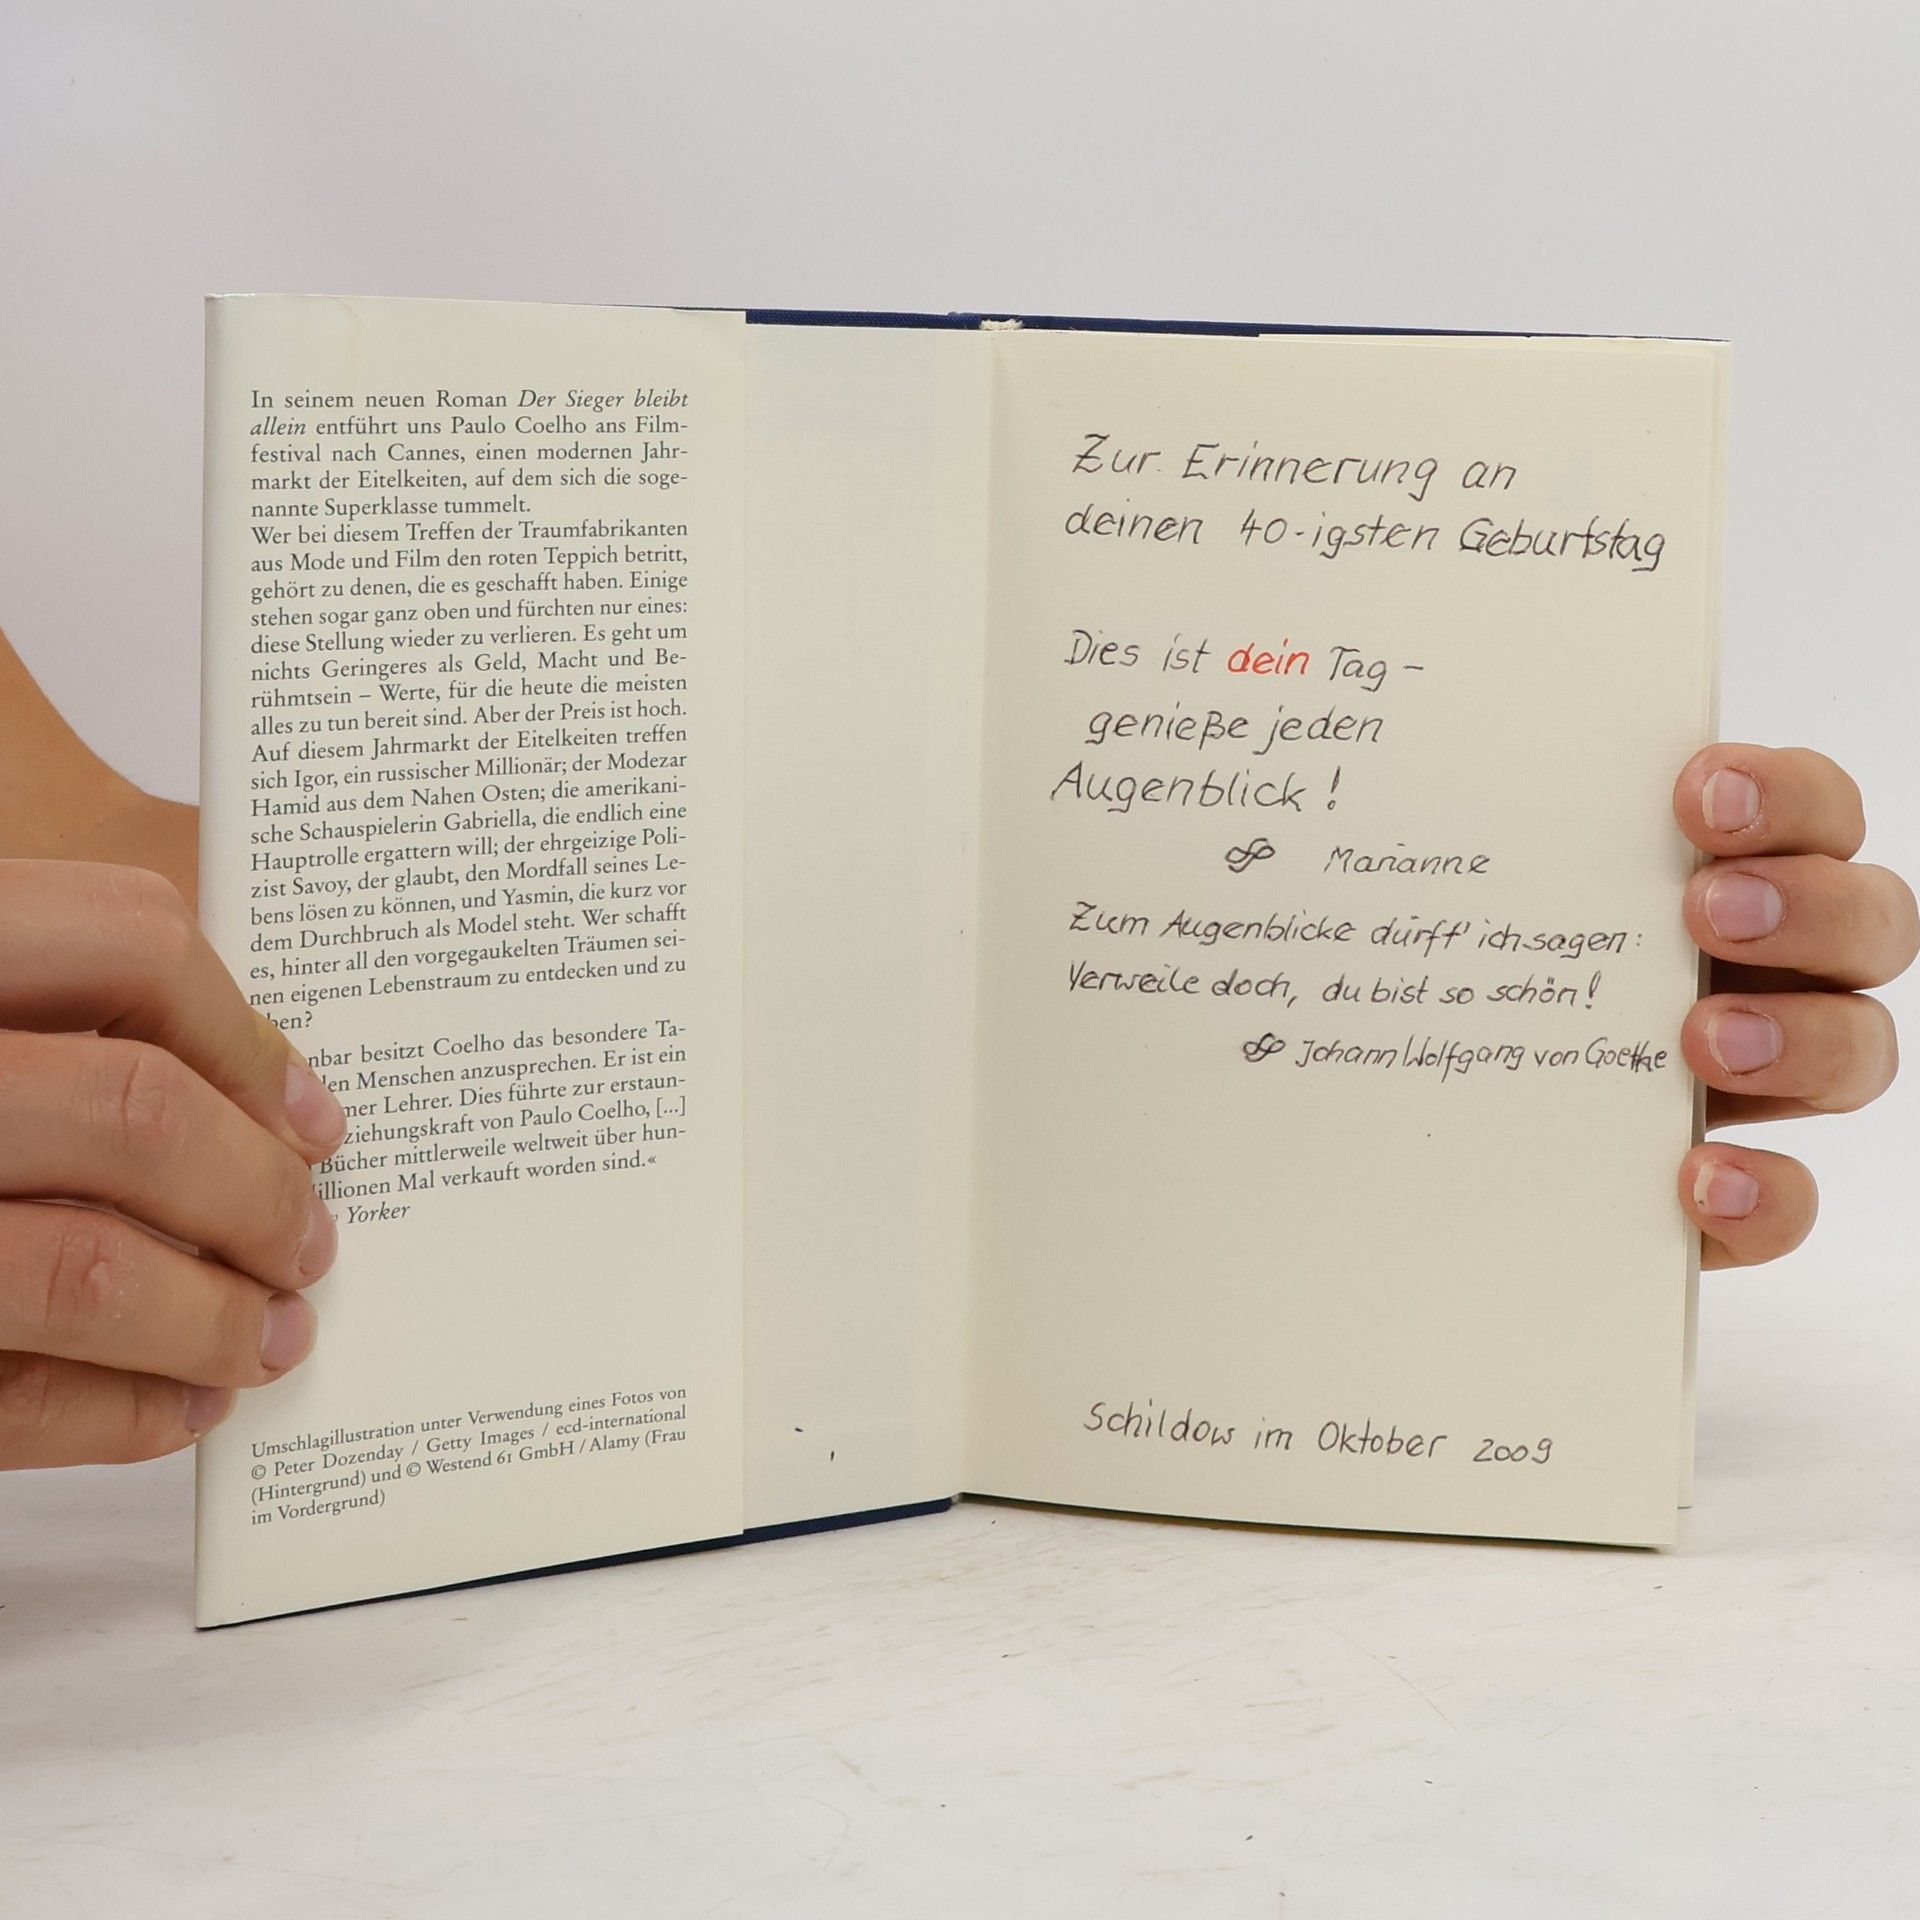 In seinem neuen Roman Der Sieger bleibt
allein entführt uns Paulo Coelho ans Film-
festival nach Cannes, einen modernen Jahr-
markt der Eitelkeiten, auf dem sich die soge-
nannte Superklasse tummelt.
Wer bei diesem Treffen der Traumfabrikanten
aus Mode und Film den roten Teppich betritt,
gehört zu denen, die es geschafft haben. Einige
stehen sogar ganz oben und fürchten nur eines:
diese Stellung wieder zu verlieren. Es geht um
nichts Geringeres als Geld, Macht und Be-
rühmtsein – Werte, für die heute die meisten
alles zu tun bereit sind. Aber der Preis ist hoch.
Auf diesem Jahrmarkt der Eitelkeiten treffen
sich Igor, ein russischer Millionär; der Modezar
Hamid aus dem Nahen Osten; die amerikani-
sche Schauspielerin Gabriella, die endlich eine
Hauptrolle ergattern will; der ehrgeizige Poli-
zist Savoy, der glaubt, den Mordfall seines Le-
bens lösen zu können, und Yasmin, die kurz vor
dem Durchbruch als Model steht. Wer schafft
es, hinter all den vorgegaukelten Träumen sei-
nen eigenen Lebenstraum zu entdecken und zu
ben?
nbar besitzt Coelho das besondere Ta-
len Menschen anzusprechen. Er ist ein
mer Lehrer. Dies führte zur erstaun-
ziehungskraft von Paulo Coelho, [...]
Bücher mittlerweile weltweit über hun-
illionen Mal verkauft worden sind.«
Yorker
Umschlagillustration unter Verwendung eines Fotos von
© Peter Dozenday / Getty Images / ecd-international
(Hintergrund) und © Westend 61 GmbH / Alamy (Frau
im Vordergrund)
Zur Erinnerung an
deinen 40-igsten Geburtstag
Dies ist dein Tag –
genieße jeden
Augenblick!
Marianne
Zum Augenblicke dürft' ich sagen:
Verweile doch, du bist so schön!
Johann Wolfgang von Goethe
Schildow im Oktober 2009